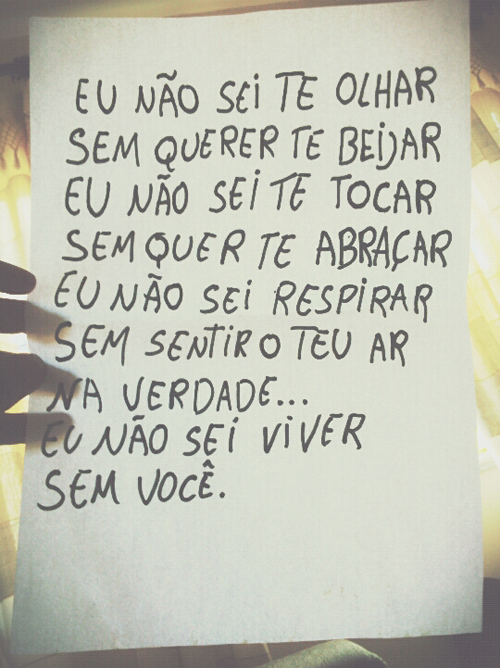 EU NÃO SEI TE OLHAR
SEM QUERER TE BEIJAR
EU NÃO SEI TE TOCAR
SEM QUER TE ABRAÇAR
EU NÃO SEI RESPIRAR
SEM SENTIR O TEU AR
NA VERDADE...
EU NÃO SEI VIVER
SEM VOCÊ.